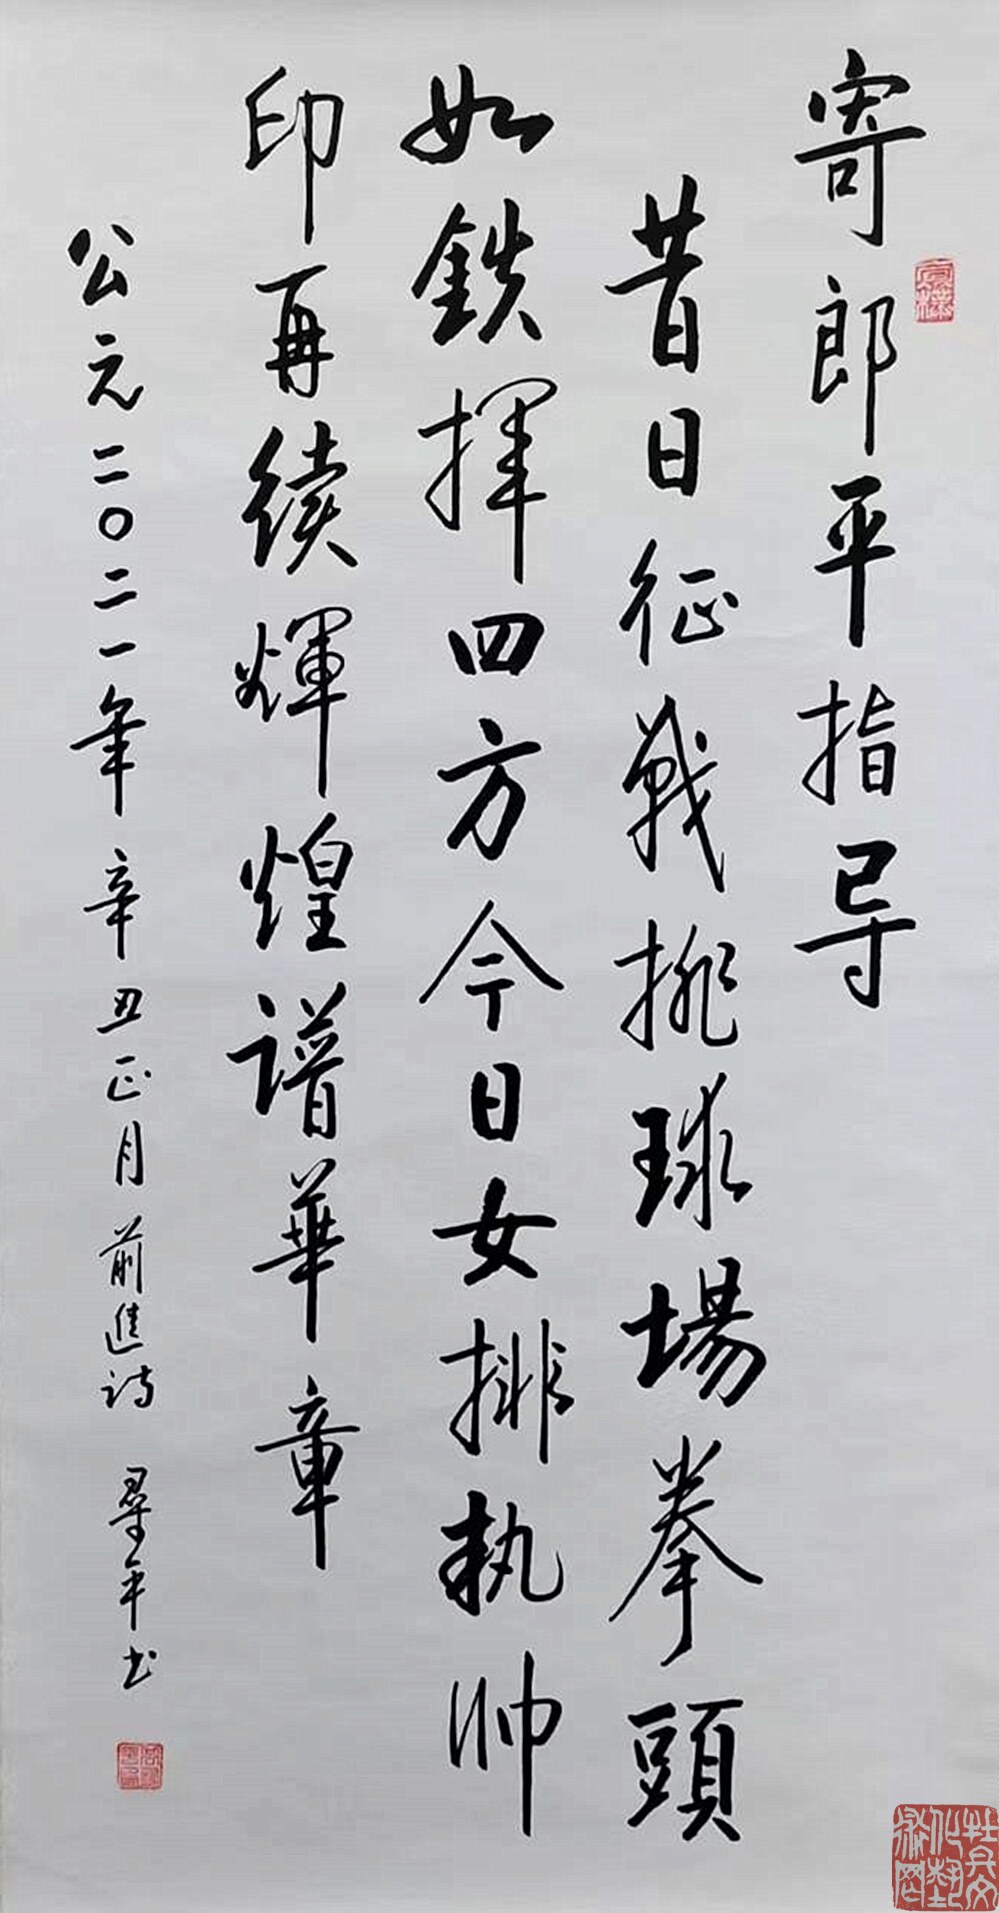 寄郎平指导
昔日征戰排球場拳頭
如鉄揮四方今日女排执帅
印再續輝煌譜華章
公元二〇二一年辛丑正月前進詩 书